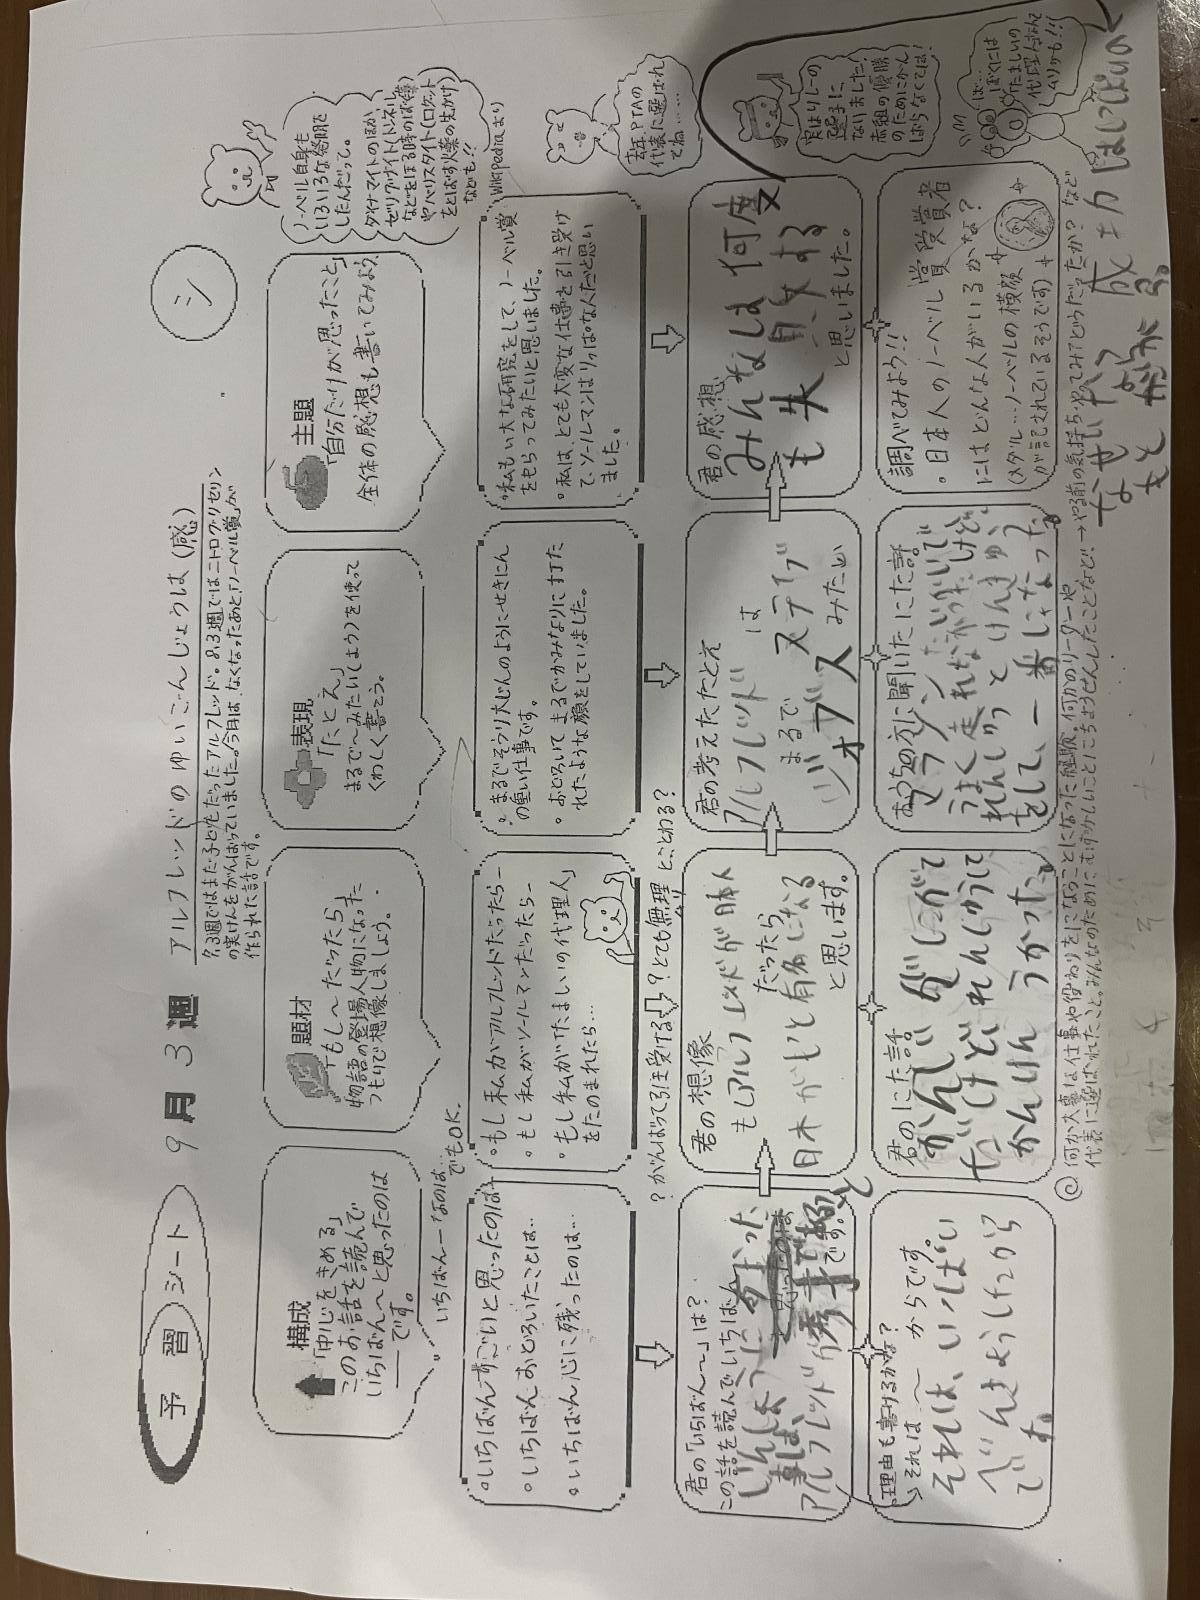 予習シート
9月3週
アルフレッドのゆいごんじょうは(感)
7,8週ではまだ子どもだったアルフレッド。8,3週ではニトログリセリン
の実けんをがんばっていました。今月は、なくなったあと、「ノーベル賞」が
作られた話です。
シ
構成
「中心をきめる」
このお話を読んで
いちばん〜と思ったのは
です。
いちばん〜なのは…
でもOK.
題材
「もし〜だったら」
物語の登場人物になった
つもりで想像しましょう。
表現
「たとえ」
まるで〜みたい(ように)を使って
くわしく書こう。
主題
「自分だけが思ったこと」
全体の感想も書いてみよう
ノーベル自身も
いろいろな発明を
したんだって。
ダイナマイトのほか
ゼリグナイト(トンネル
などをほる時のばく薬)
やバリスタイト(ロケット
をとばす火薬の先がけ)
なども!!
Wikipediaより
。いちばんすごいと思ったのは…
。いちばんおどろいたことは…
。いちばん心に残ったのは…
。もし私がアルフレッドだったら―
。もし私がソールマンだったら―
。もし私が「たましいの代理人」
をたのまれたら…
?がんばって引き受ける ?とても無理 とことわる?
。まるでそうり大じんのようにせきにん
の重い仕事です。
。おどろいて まるでかみなりに打た
れたような顔をしていました。
。私もい大な研究をして、ノーベル賞
をもらってみたいと思いました。
。私は、とても大変な仕事を引き受け
て、ソールマンはりっぱな人だと思い
ました。
去年PTAの
代表に選ばれ
てね……
君の「いちばん〜」は?
この話を読んでいちばん
アルフレッドが
です。
君の想像
もしアルフレッドが日本人
だったら
日本がもっと有名になる
と思います。
君の考えたたとえ
アルフレッドは
まるで
スティブ
ジョブス みたい
君の感想
みんなしは何度
も失敗する
と思いました。
実はリレーの
選手に
なりました!
赤組の優勝
のためにがん
ばらなくては!
理由も書けるかな?
それは 〜 からです。
それは、いっぱい
べんきょうしたから
です。
君のにた話
かんじがにがて
だけどれんしゅうして
かんけんうかった。
おうちの方に聞いたにた話
マラソン
うまく走れなかったけど、
れんしゅうとけんきゅう
をして、一番になった。
調べてみよう!!
。日本人のノーベル賞受賞者
にはどんな人がいるかな?
(メダル…ノーベルの横顔
が記されているそうです)
ぼ…
ぼくには
「たましいの
代理人」なんて
ムリかも!!!
何か大事な仕事や役わりをになうことになった経験。何かのリーダーや、
代表に選ばれたこと。みんなのためにむずかしいことにちょうせんしたことなど。→やる前の気持ち、やってみてどうだったか?など